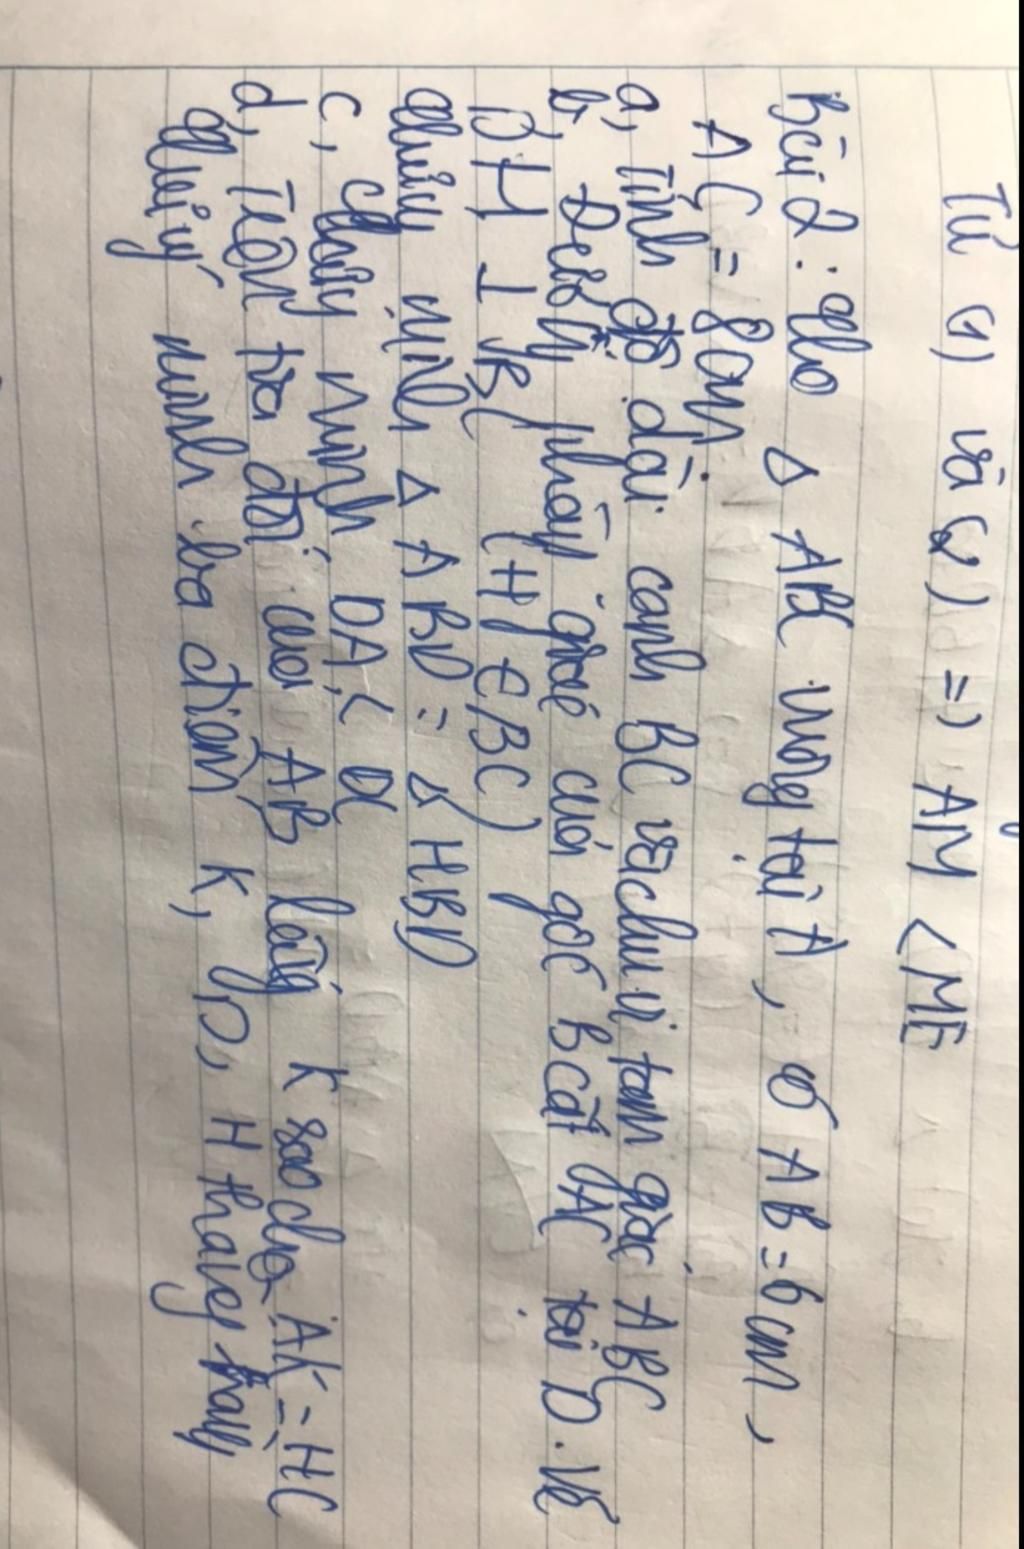 Từ (1) và (2) => AM < ME
Bài 2: cho Δ ABC vuông tại A, có AB = 6cm,
AC = 8cm.
a, Tính độ dài cạnh BC và chu vi tam giác ABC
b, Đường phân giác của góc B cắt AC tại D. Vẽ
DH ⊥ BC (H ∈ BC)
chứng minh Δ ABD = Δ HBD
c, chứng minh DA < DC
d, Trên tia đối của AB lấy K sao cho AK = HC
chứng minh ba điểm K, D, H thẳng hàng